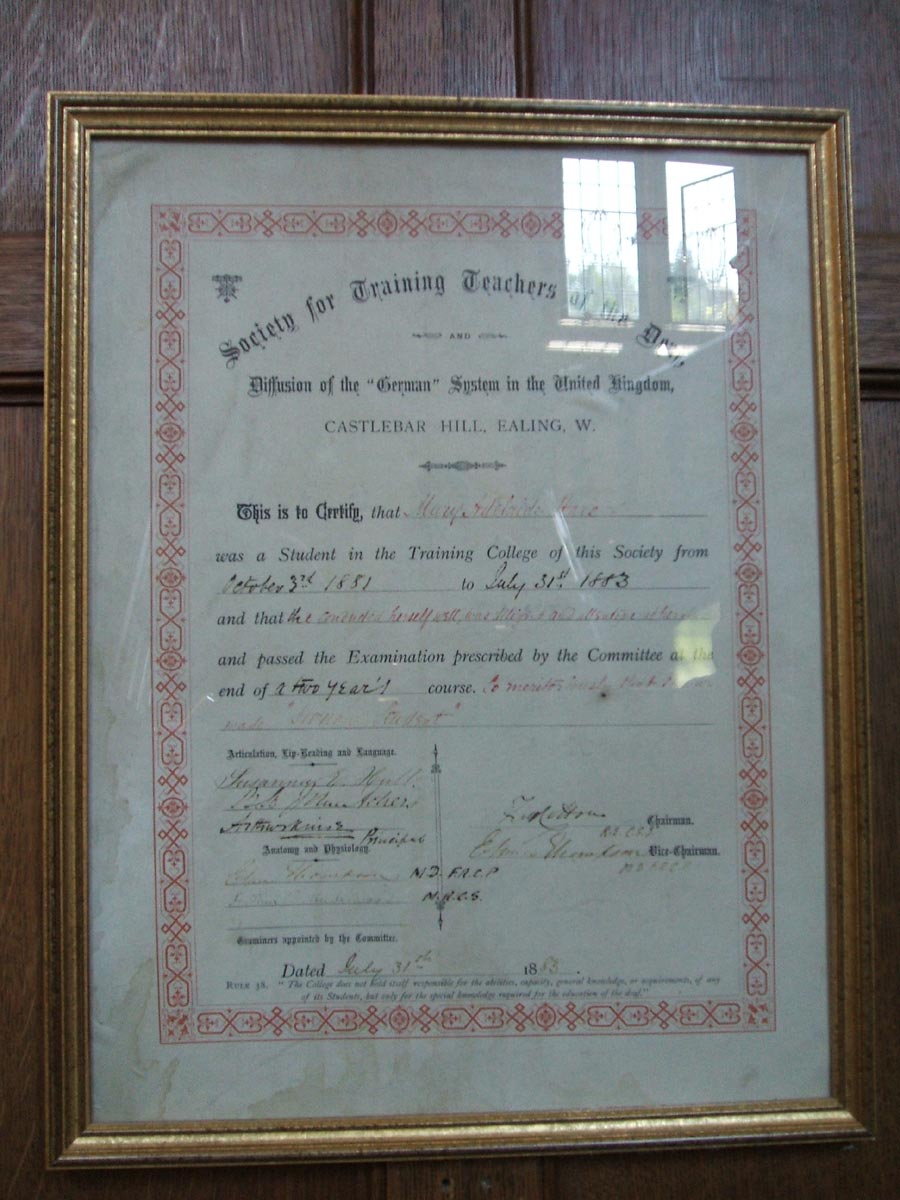 Society for Training Teachers of the Deaf
AND
Diffusion of the "German" System in the United Kingdom,
CASTLEBAR HILL, EALING, W.
This is to Certify, that Mary Adelaide
was a Student in the Training College of this Society from
October 3rd 1881 to July 31st 1883
and that she conducted herself well, was diligent and attentive
and passed the Examination prescribed by the Committee at the
end of a two year's course. So meritoriously that
made "Honour Student"
Articulation, Lip-Reading and Language.
Susanna E. Hull.
Arthur Kinsey Principal
Chairman.
M.R.C.S
Anatomy and Physiology.
Vice-Chairman.
M.D. F.R.C.P
M.D. F.R.C.P
M.R.C.S.
Examiners appointed by the Committee.
Dated July 31st 1883.
RULE 38. "The College does not hold itself responsible for the abilities, capacity, general knowledge, or requirements, of any
of its Students, but only for the special knowledge required for the education of the deaf."